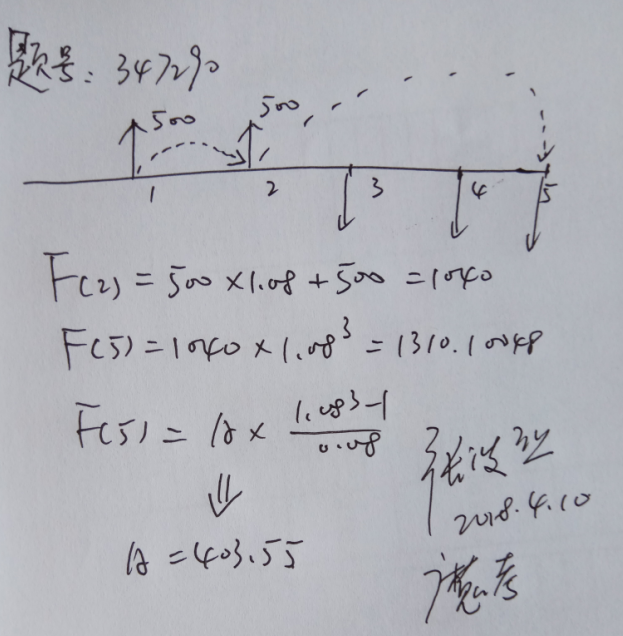 题号：347290
500 500
1 2 3 4 5
F(2) = 500 ×1.08 + 500 = 1040
F(5) = 1040 × 1.08³ = 1310.10048
F(5) = A × (1.08³-1)/0.08
⇓
A = 403.55
2018.4.10